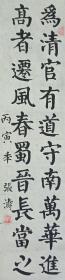 為清官有道守南萬華進
高者遷風春蜀晉長當之
丙寅年 張濤